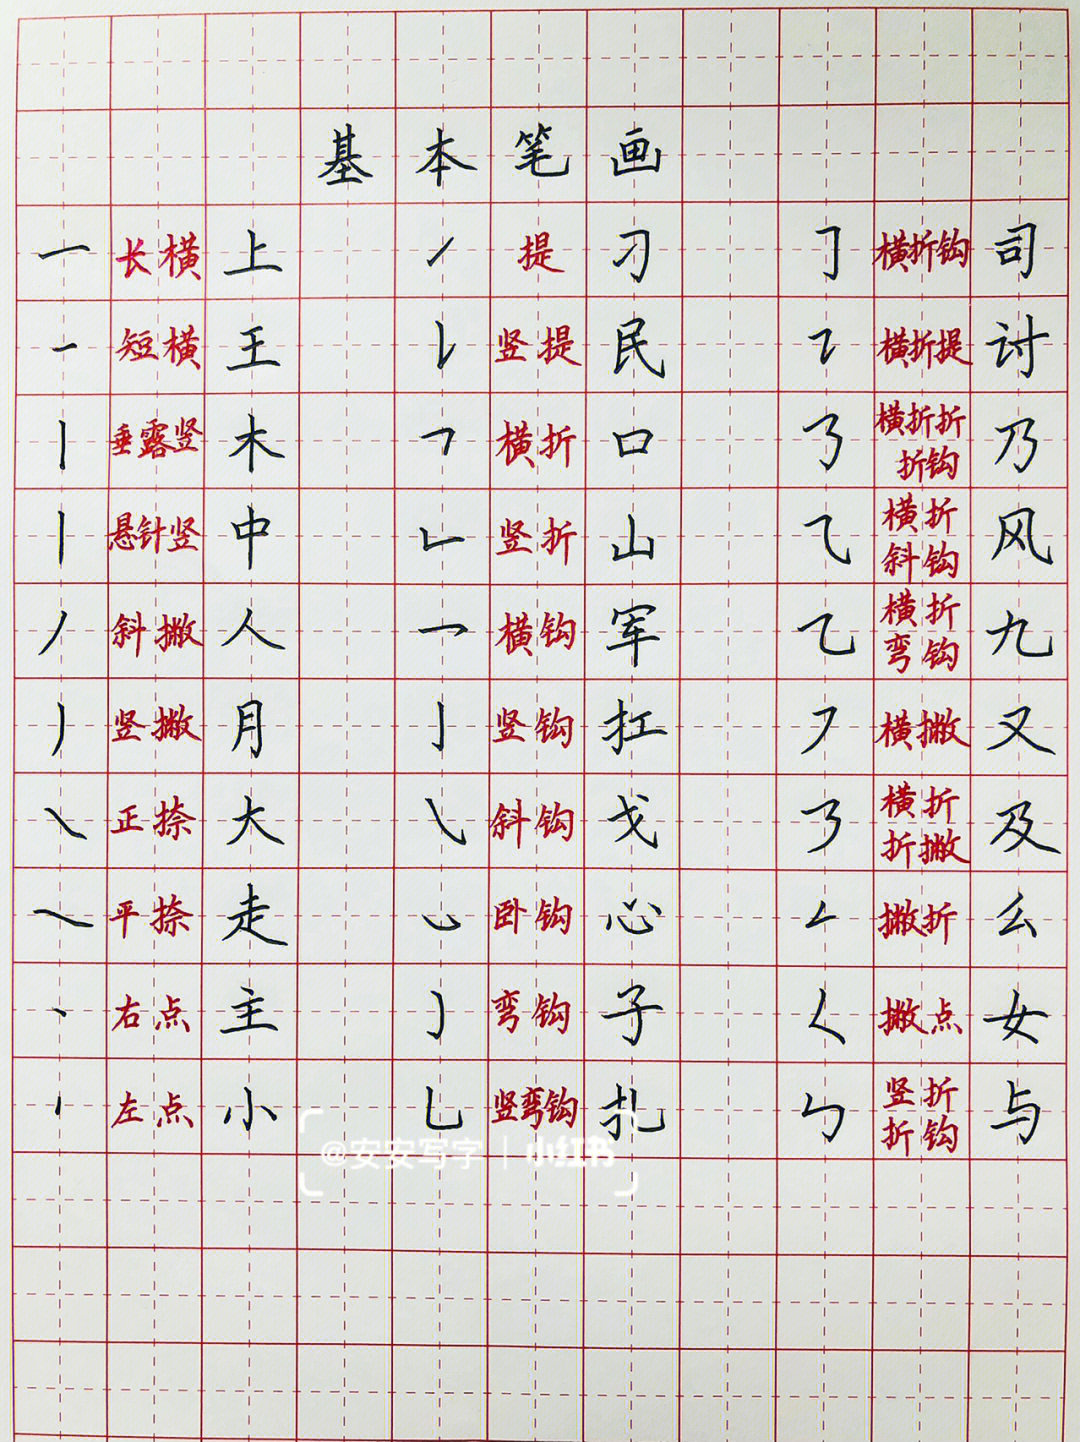 基本笔画
一 长横 上 ㇀ 提 刁 ㇆ 横折钩 司
一 短横 王 ㇙ 竖提 民 ㇊ 横折提 讨
丨 垂露竖 木 ㇕ 横折 口 ㇡ 横折折折钩 乃
丨 悬针竖 中 ㇗ 竖折 山 ⺄ 横折斜钩 风
丿 斜撇 人 ㇖ 横钩 军 乙 横折弯钩 九
㇓ 竖撇 月 亅 竖钩 扛 ㇇ 横撇 又
㇏ 正捺 大 ㇂ 斜钩 戈 ㇋ 横折折撇 及
㇏ 平捺 走 ㇃ 卧钩 心 ㇜ 撇折 么
丶 右点 主 ㇁ 弯钩 子 ㇛ 撇点 女
丶 左点 小 乚 竖弯钩 扎 ㇉ 竖折折钩 与
@安安写字 | 小红书